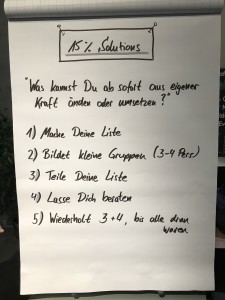 15% Solutions
"Was kannst Du ab sofort aus eigener
Kraft änden oder umsetzen?"
1) Mache Deine Liste
2) Bildet kleine Gruppen (3-4 Pers)
3) Teile Deine Liste
4) Lasse Dich beraten
5) Wiederholt 3+4, bis alle dran
waren